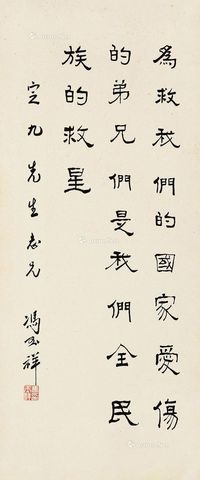 為救我們的國家受傷
的弟兄們是我們全民
族的救星
定九先生志兄
馮玉祥